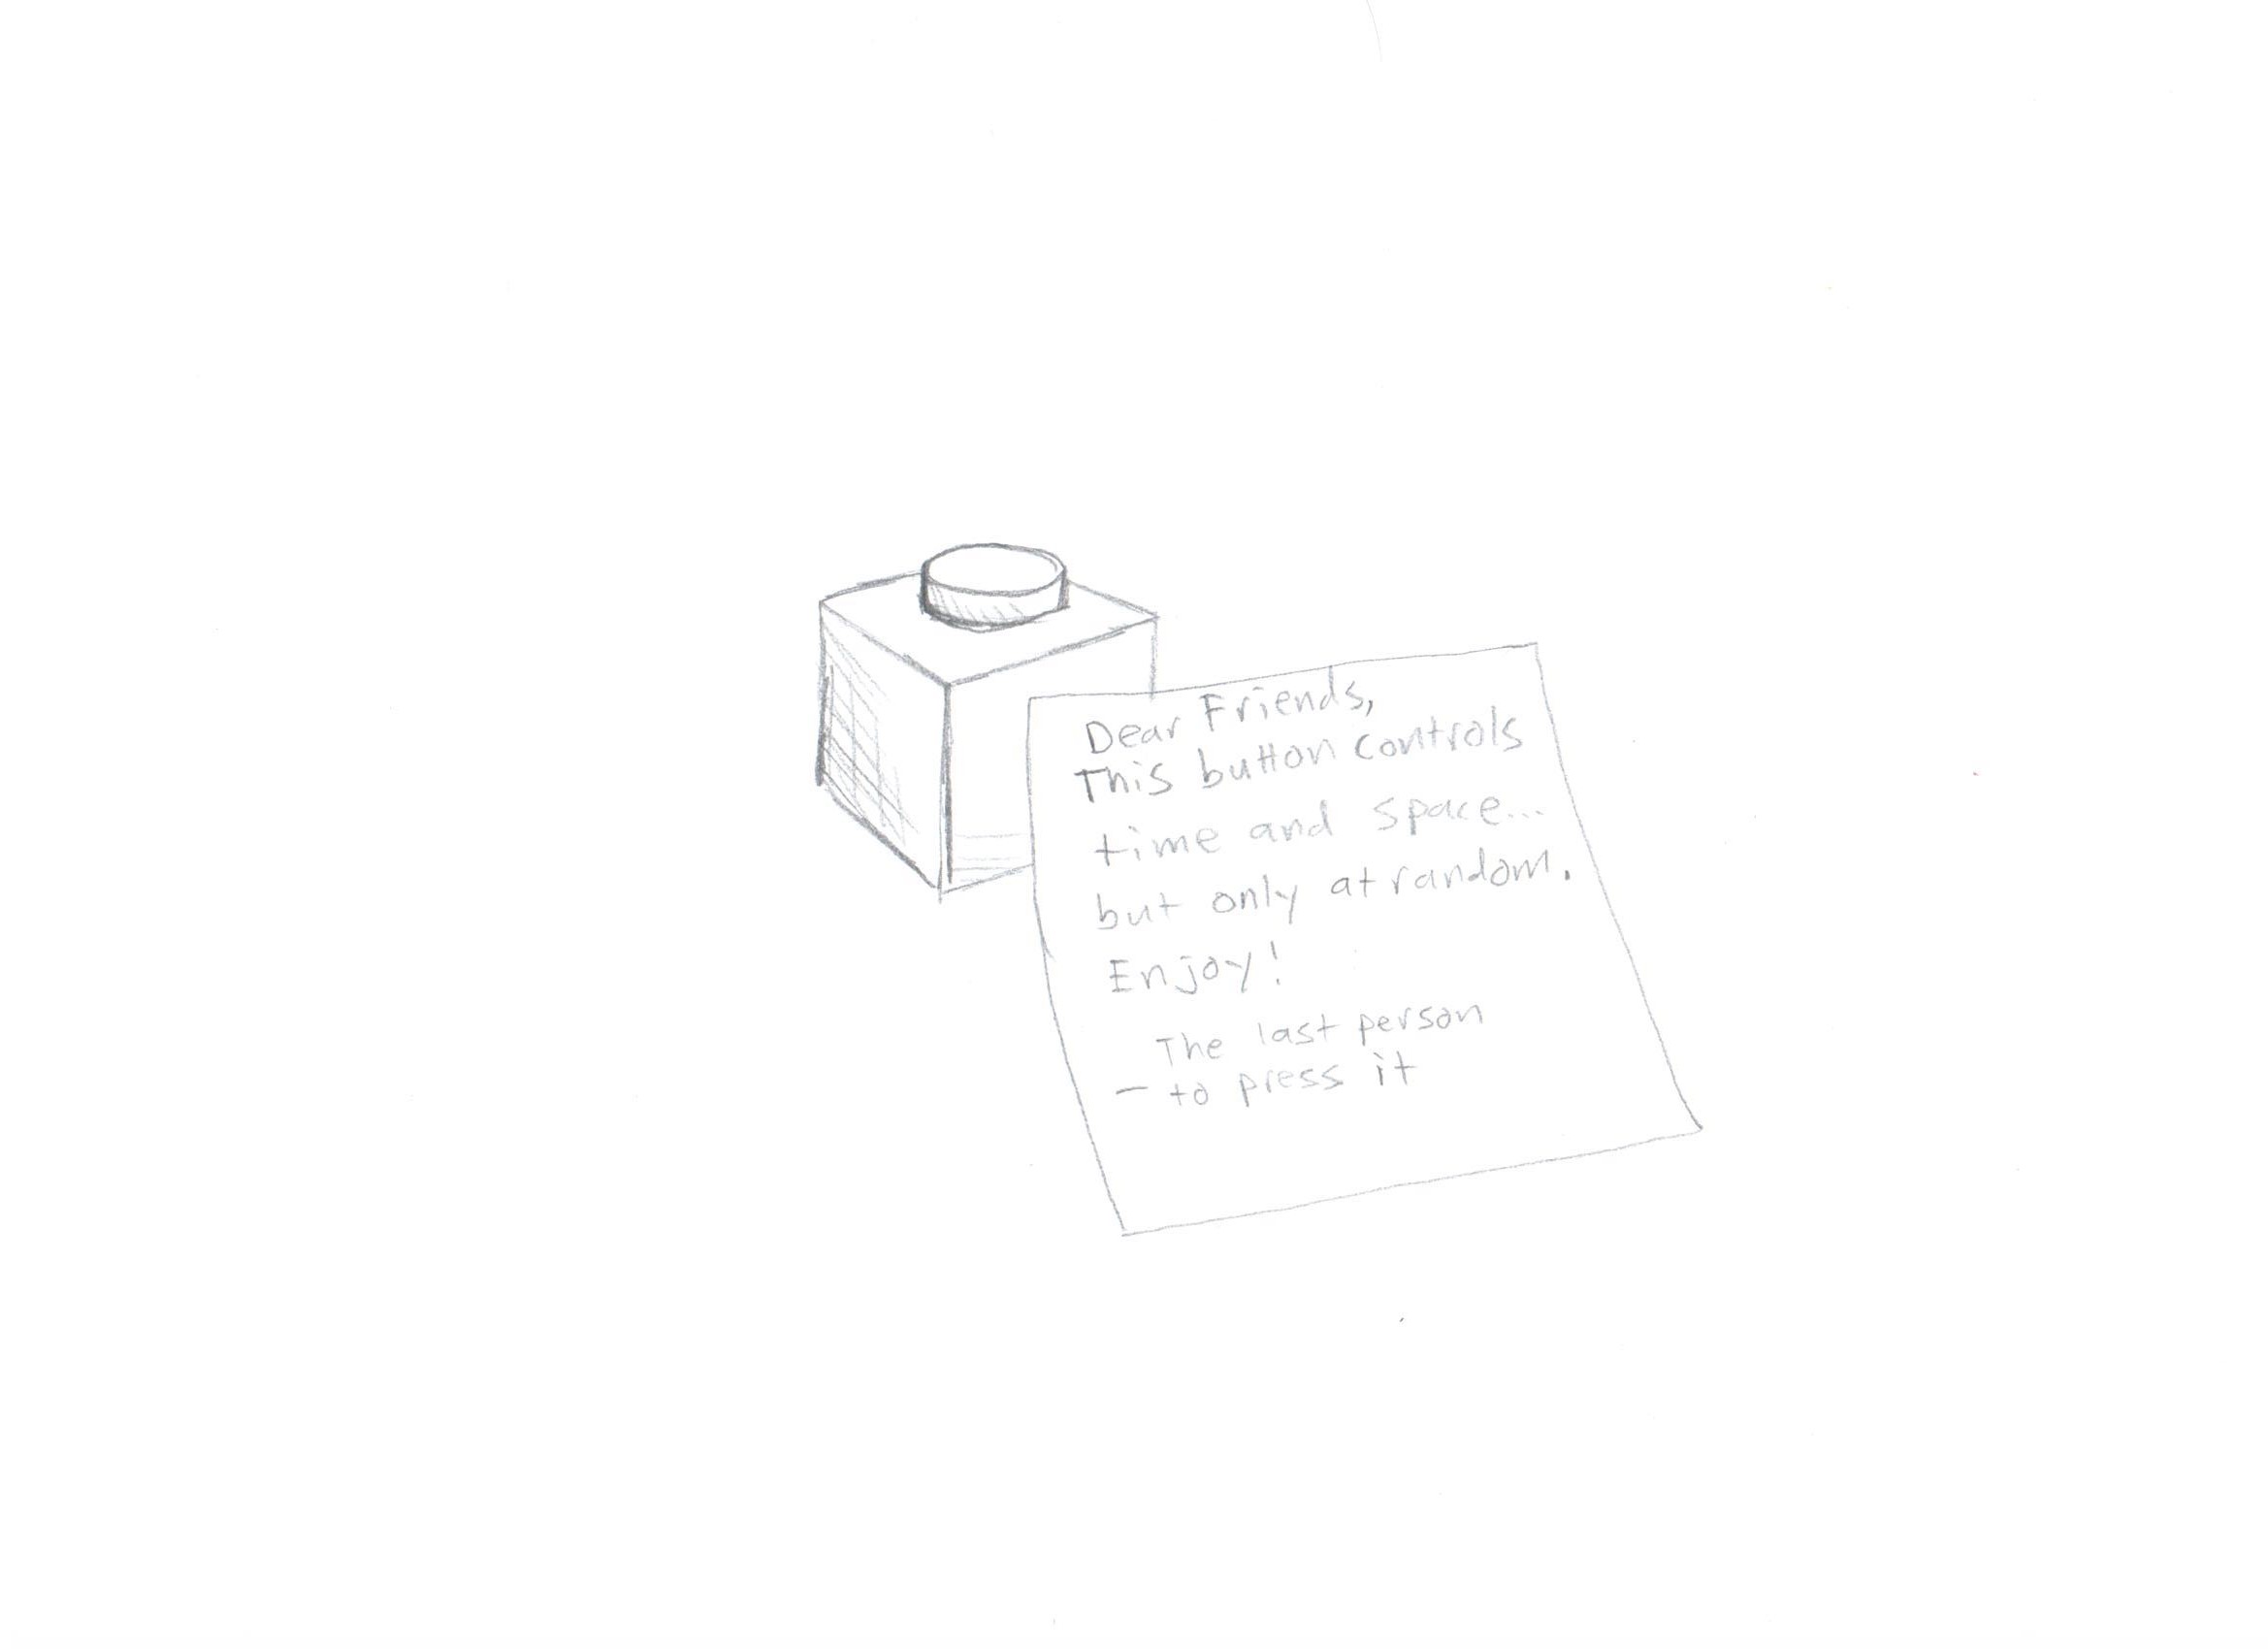 Dear Friends,
This button controls
time and space...
but only at random.
Enjoy!
The last person
- to press it